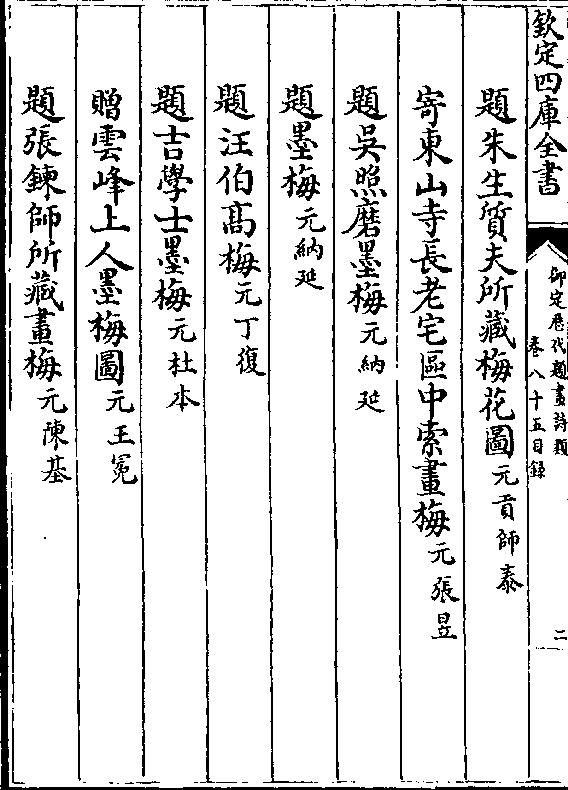 欽定四庫全書
御定歷代題畫詩類
卷八十五目錄
二
題朱生質夫所藏梅花圖元貢師泰
寄東山寺長老宅區中索畫梅元張昱
題吳照磨墨梅元納延
題墨梅元納延
題汪伯高梅元丁復
題吉學士墨梅元杜本
贈雲峰上人墨梅圖元王冕
題張鍊師所藏畫梅元陳基